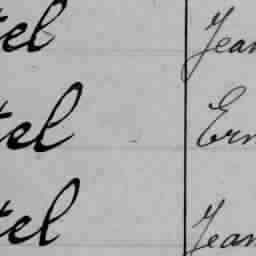 tel Jean
tel Ern
tel Jean